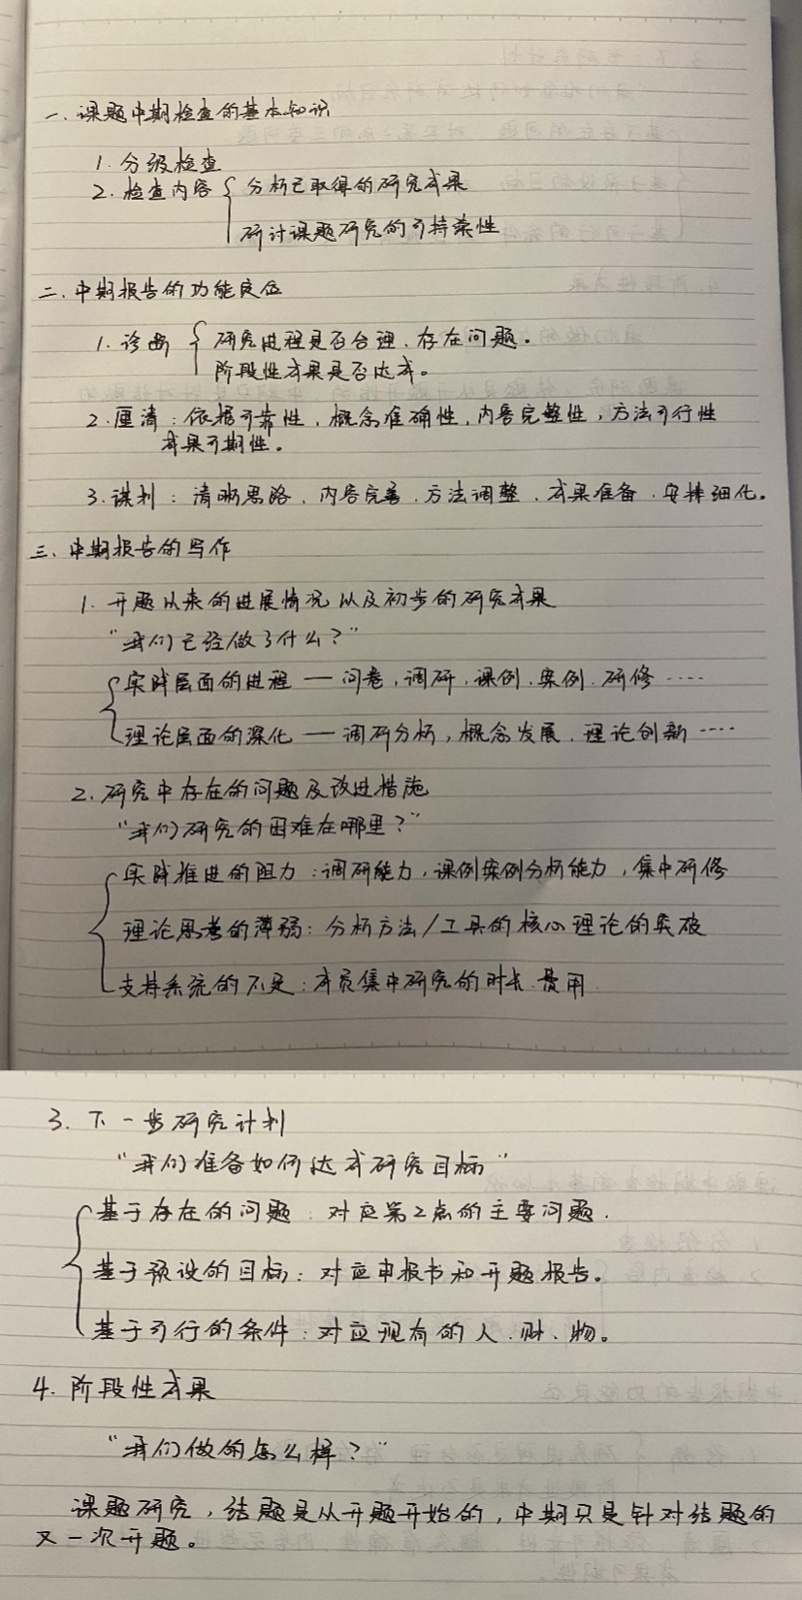 一、课题中期检查的基本知识
1. 分级检查
2. 检查内容 { 分析已取得的研究成果
研讨课题研究的可持续性
二、中期报告的功能定位
1. 诊断 { 研究进程是否合理、存在问题。
阶段性成果是否达成。
2. 厘清：依据可靠性，概念准确性，内容完整性，方法可行性
成果可期性。
3. 谋划：清晰思路、内容完善、方法调整、成果准备、安排细化。
三、中期报告的写作
1. 开题以来的进展情况以及初步的研究成果
“我们已经做了什么？”
实践层面的进程 — 问卷，调研，课例、案例、研修 ····
理论层面的深化 — 调研分析，概念发展、理论创新 ····
2. 研究中存在的问题及改进措施
“我们研究的困难在哪里？”
实践推进的阻力：调研能力，课例案例分析能力，集中研修
理论思考的薄弱：分析方法/工具的核心理论的突破
支持系统的不足：成员集中研究的时长、费用
3. 下一步研究计划
“我们准备如何达成研究目标”
基于存在的问题：对应第2点的主要问题.
基于预设的目标：对应申报书和开题报告。
基于可行的条件：对应现有的人、财、物。
4. 阶段性成果
“我们做的怎么样？”
课题研究，结题是从开题开始的，中期只是针对结题的
又一次开题。